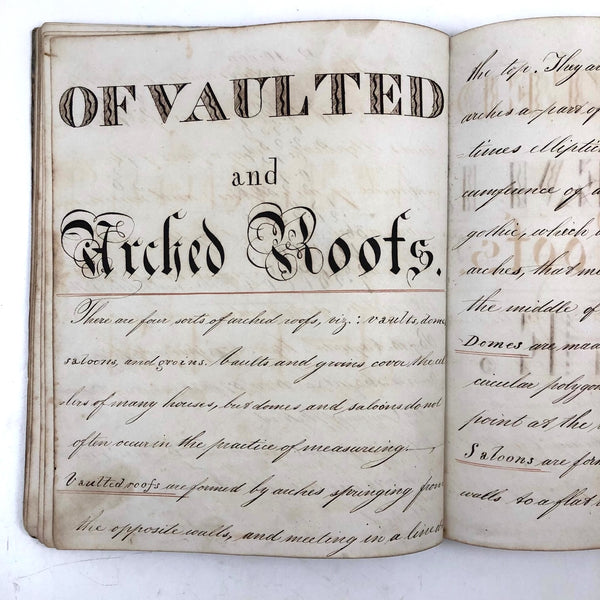 OF VAULTED
and
Arched Roofs.
There are four sorts of arched roofs, viz: vaults, dome
saloons, and groins. Vaults and groins cover the cel
lers of many houses, but domes and saloons do not
often occur in the practice of measureing.
Vaulted roofs are formed by arches springing from
the opposite walls, and meeting in a line at
the top. They ar
arches a part of
=times elliptic
cumference of a
gothic, which
arches, that m
the middle of
Domes are mad
circular polygon
point at the
Saloons are form
walls to a flat